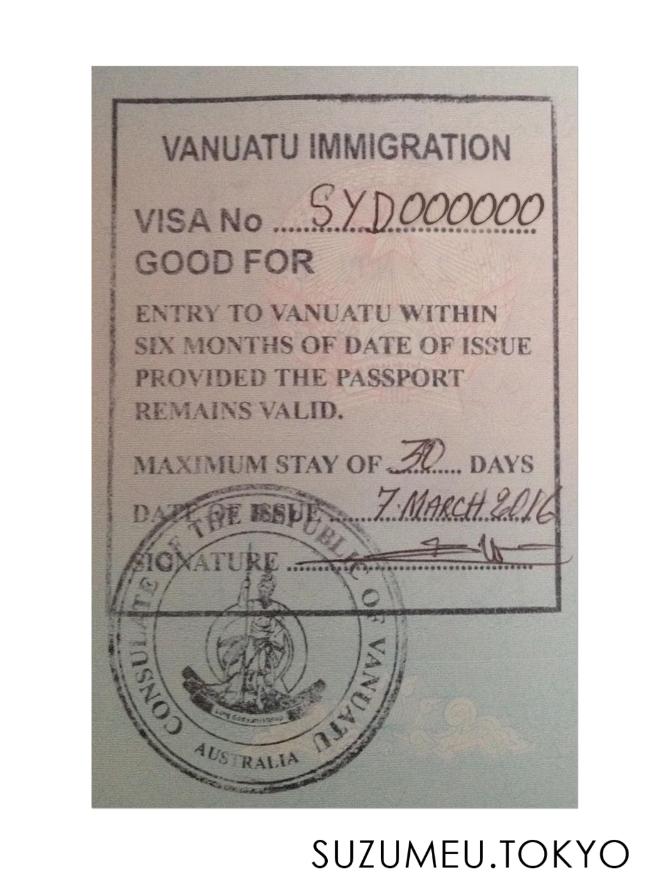 VANUATU IMMIGRATION
VISA No ..... SYD000000
GOOD FOR
ENTRY TO VANUATU WITHIN
SIX MONTHS OF DATE OF ISSUE
PROVIDED THE PASSPORT
REMAINS VALID.
MAXIMUM STAY OF 30 DAYS
DATE OF ISSUE ..... 7 MARCH 2016
SIGNATURE .....
CONSULATE OF THE REPUBLIC OF VANUATU
AUSTRALIA
SUZUMEU.TOKYO